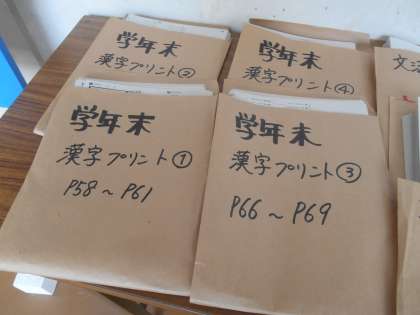 学年末
漢字プリント②
学年末
漢字プリント④
学年末
漢字プリント①
P58～P61
学年末
漢字プリント③
P66～P69